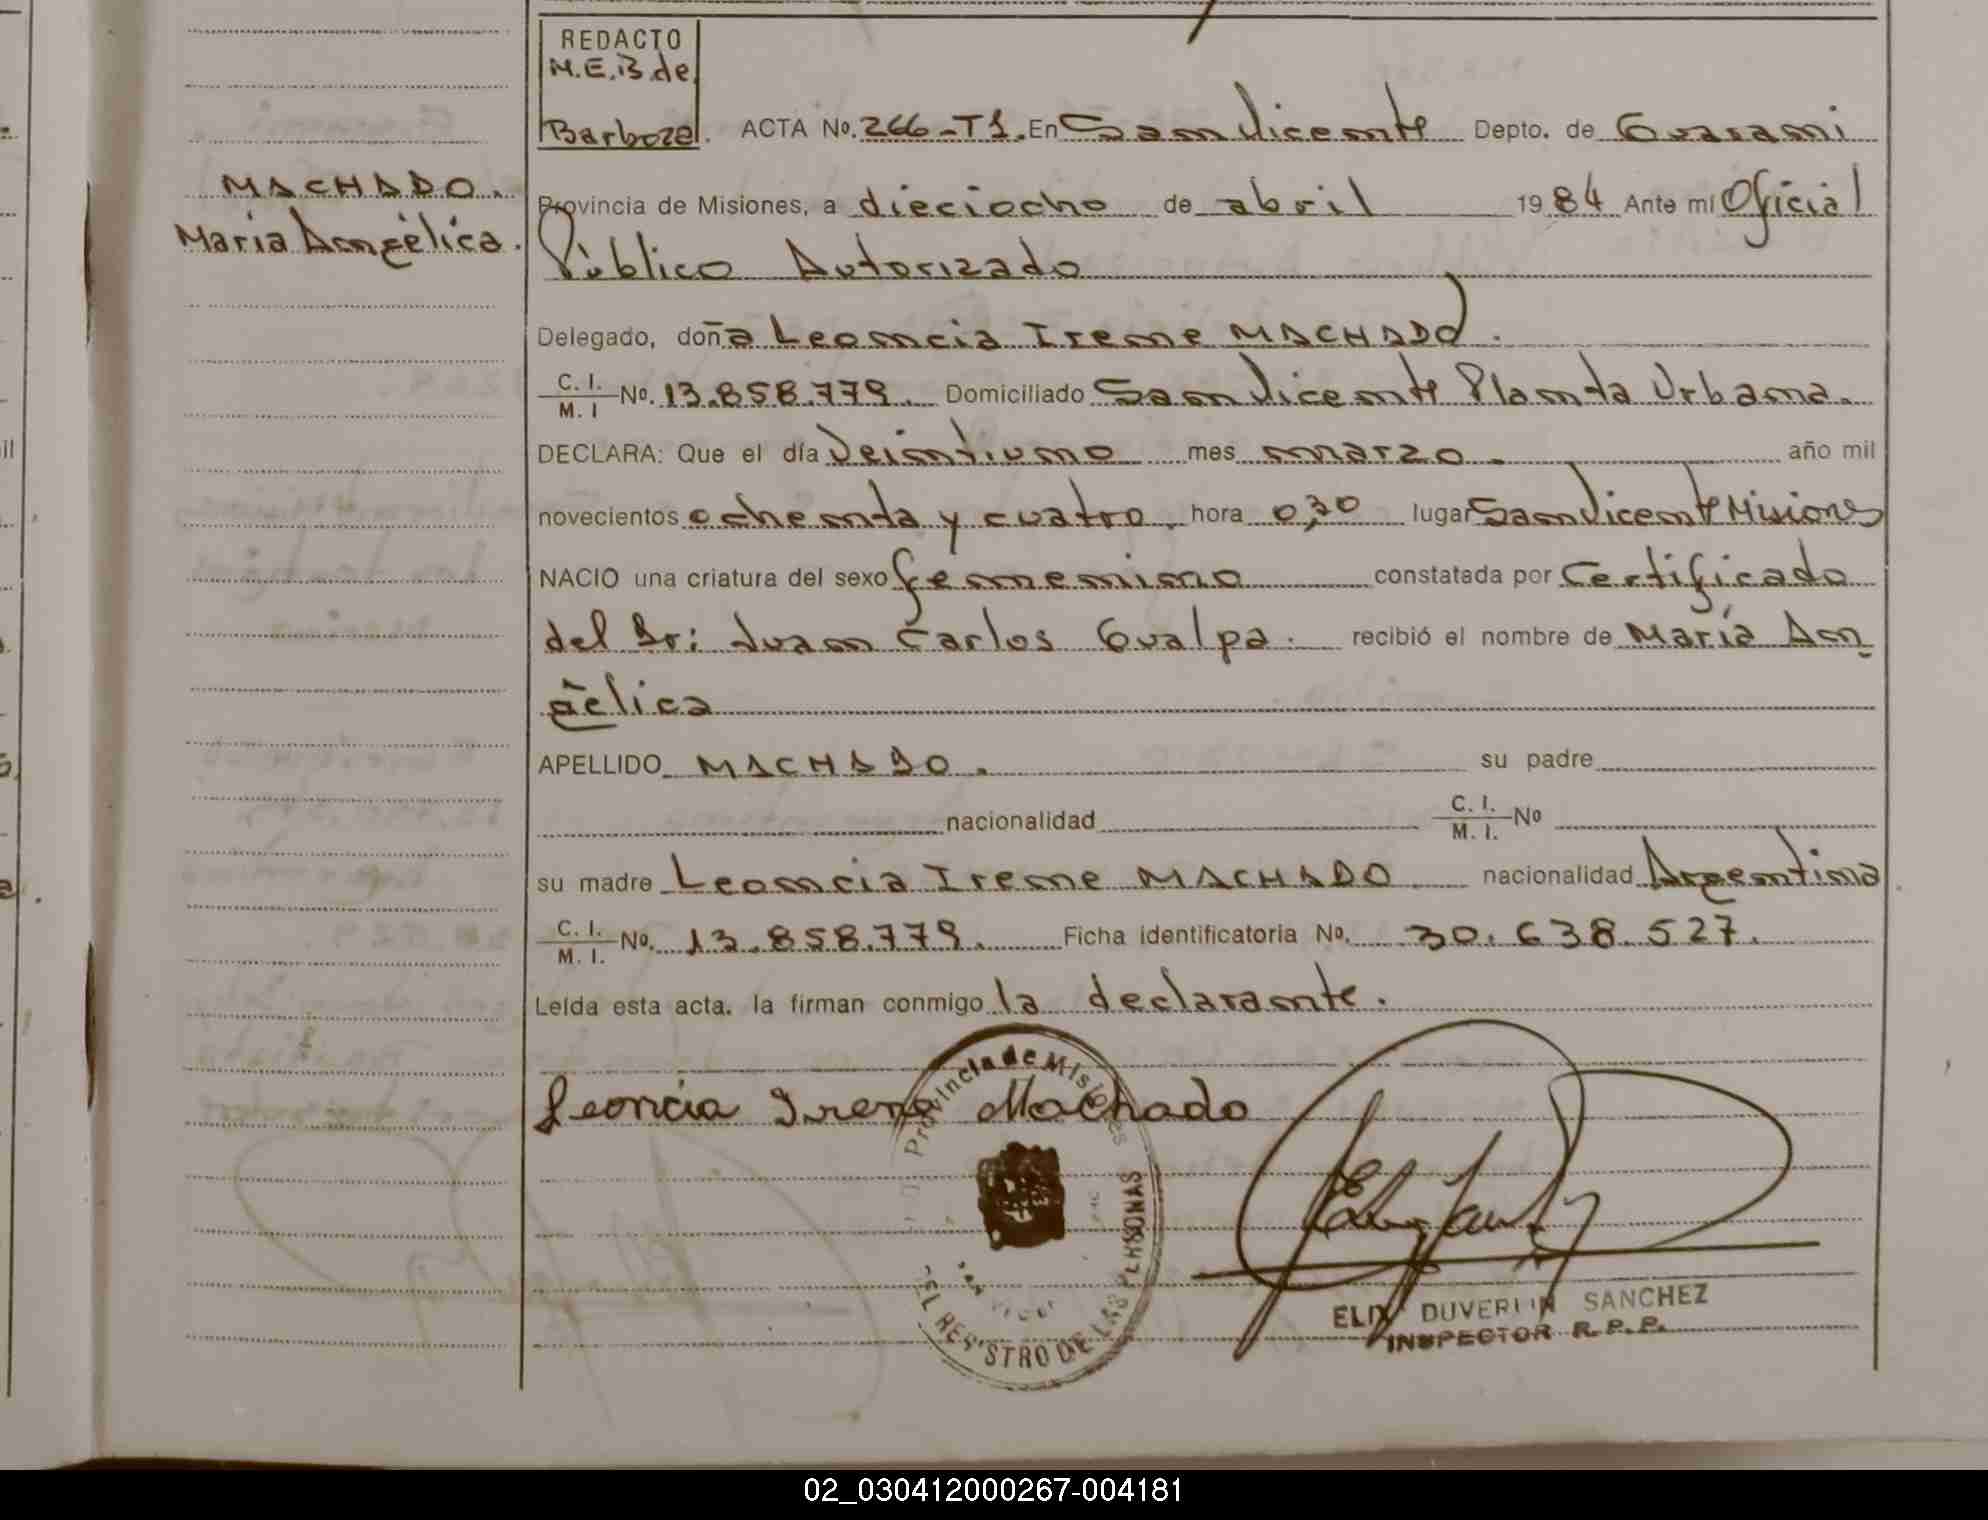 REDACTO
M.E.B. de
Barboza.
ACTA No. 266-T1. En San Vicente Depto. de Guarani
MACHADO.
María Angélica.
Provincia de Misiones, a dieciocho de abril 1984 Ante mí Oficial
Público Autorizado
Delegado, doña Leoncia Irene MACHADO.
C. I.
M. I No. 13.858.779. Domiciliado San Vicente Planta Urbana.
DECLARA: Que el día Veintiuno mes marzo. año mil
novecientos ochenta y cuatro. hora 0,30 lugar San Vicente Misiones
NACIO una criatura del sexo femenino constatada por Certificado
del Dr: Juan Carlos Gualpa. recibió el nombre de María An
gélica
APELLIDO MACHADO. su padre
nacionalidad C. I.
M. I. No
su madre Leoncia Irene MACHADO nacionalidad Argentina
C. I.
M. I. No. 13.858.779. Ficha identificatoria No. 30.638.527.
Leída esta acta, la firman conmigo la declarante.
Provincia de Misiones
Leoncia Irene Machado
EL REGISTRO DE LAS PERSONAS
DUVERLIN SANCHEZ
INSPECTOR R.P.P.
02_030412000267-004181